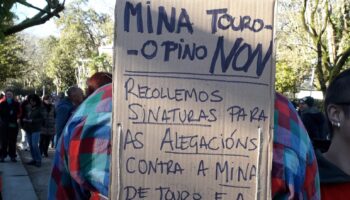 MINA TOURO-
-O PINO NON
RECOLLEMOS
SINATURAS PARA
AS ALEGACIÓNS
CONTRA A MINA
DE TOURO E A